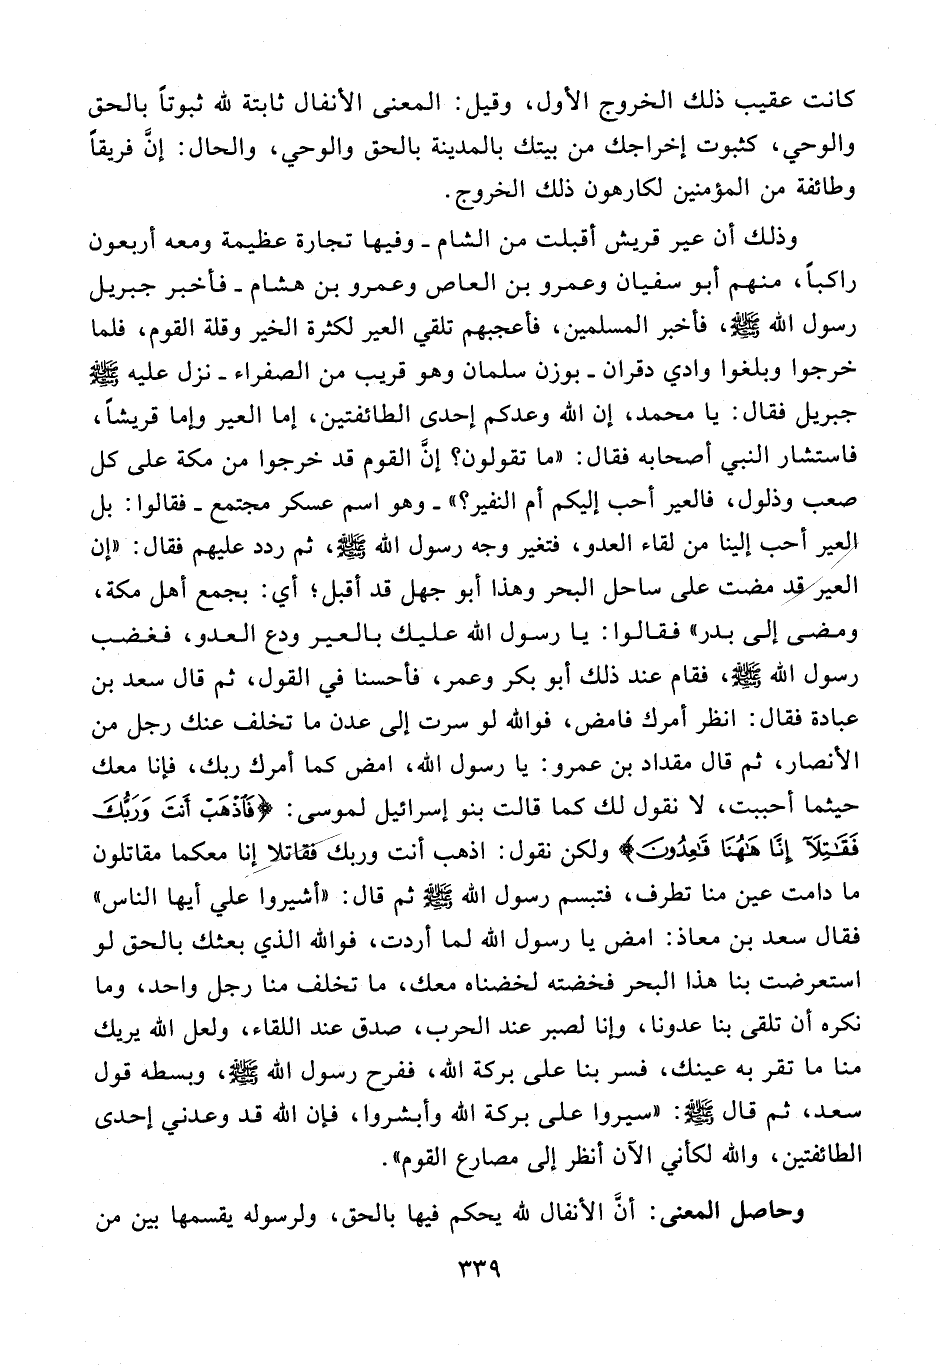 كانت عقيب ذلك الخروج الأول، وقيل: المعنى الأنفال ثابتة لله ثبوتاً بالحق
والوحي، كثبوت إخراجك من بيتك بالمدينة بالحق والوحي، والحال: إنَّ فريقاً
وطائفة من المؤمنين لكارهون ذلك الخروج.
وذلك أن عير قريش أقبلت من الشام ـ وفيها تجارة عظيمة ومعه أربعون
راكباً، منهم أبو سفيان وعمرو بن العاص وعمرو بن هشام ـ فأخبر جبريل
رسول الله ﷺ، فأخبر المسلمين، فأعجبهم تلقي العير لكثرة الخير وقلة القوم، فلما
خرجوا وبلغوا وادي دقران ـ بوزن سلمان وهو قريب من الصفراء ـ نزل عليه ﷺ
جبريل فقال: يا محمد، إن الله وعدكم إحدى الطائفتين، إما العير وإما قريشاً،
فاستشار النبي أصحابه فقال: «ما تقولون؟ إنَّ القوم قد خرجوا من مكة على كل
صعب وذلول، فالعير أحب إليكم أم النفير؟» ـ وهو اسم عسكر مجتمع ـ فقالوا: بل
العير أحب إلينا من لقاء العدو، فتغير وجه رسول الله ﷺ، ثم ردد عليهم فقال: «إن
العير قد مضت على ساحل البحر وهذا أبو جهل قد أقبل؛ أي: بجمع أهل مكة،
ومضى إلى بدر» فقالوا: يا رسول الله عليك بالعير ودع العدو، فغضب
رسول الله ﷺ، فقام عند ذلك أبو بكر وعمر، فأحسنا في القول، ثم قال سعد بن
عبادة فقال: انظر أمرك فامض، فوالله لو سرت إلى عدن ما تخلف عنك رجل من
الأنصار، ثم قال مقداد بن عمرو: يا رسول الله، امض كما أمرك ربك، فإنا معك
حيثما أحببت، لا نقول لك كما قالت بنو إسرائيل لموسى: ﴿فَٱذْهَبْ أَنتَ وَرَبُّكَ
فَقَٰتِلَآ إِنَّا هَٰهُنَا قَٰعِدُونَ﴾ ولكن نقول: اذهب أنت وربك فقاتلا إنا معكما مقاتلون
ما دامت عين منا تطرف، فتبسم رسول الله ﷺ ثم قال: «أشيروا علي أيها الناس»
فقال سعد بن معاذ: امض يا رسول الله لما أردت، فوالله الذي بعثك بالحق لو
استعرضت بنا هذا البحر فخضته لخضناه معك، ما تخلف منا رجل واحد، وما
نكره أن تلقى بنا عدونا، وإنا لصبر عند الحرب، صدق عند اللقاء، ولعل الله يريك
منا ما تقر به عينك، فسر بنا على بركة الله، ففرح رسول الله ﷺ، وبسطه قول
سعد، ثم قال ﷺ: «سيروا على بركة الله وأبشروا، فإن الله قد وعدني إحدى
الطائفتين، والله لكأني الآن أنظر إلى مصارع القوم».
وحاصل المعنى: أنَّ الأنفال لله يحكم فيها بالحق، ولرسوله يقسمها بين من
٣٣٩